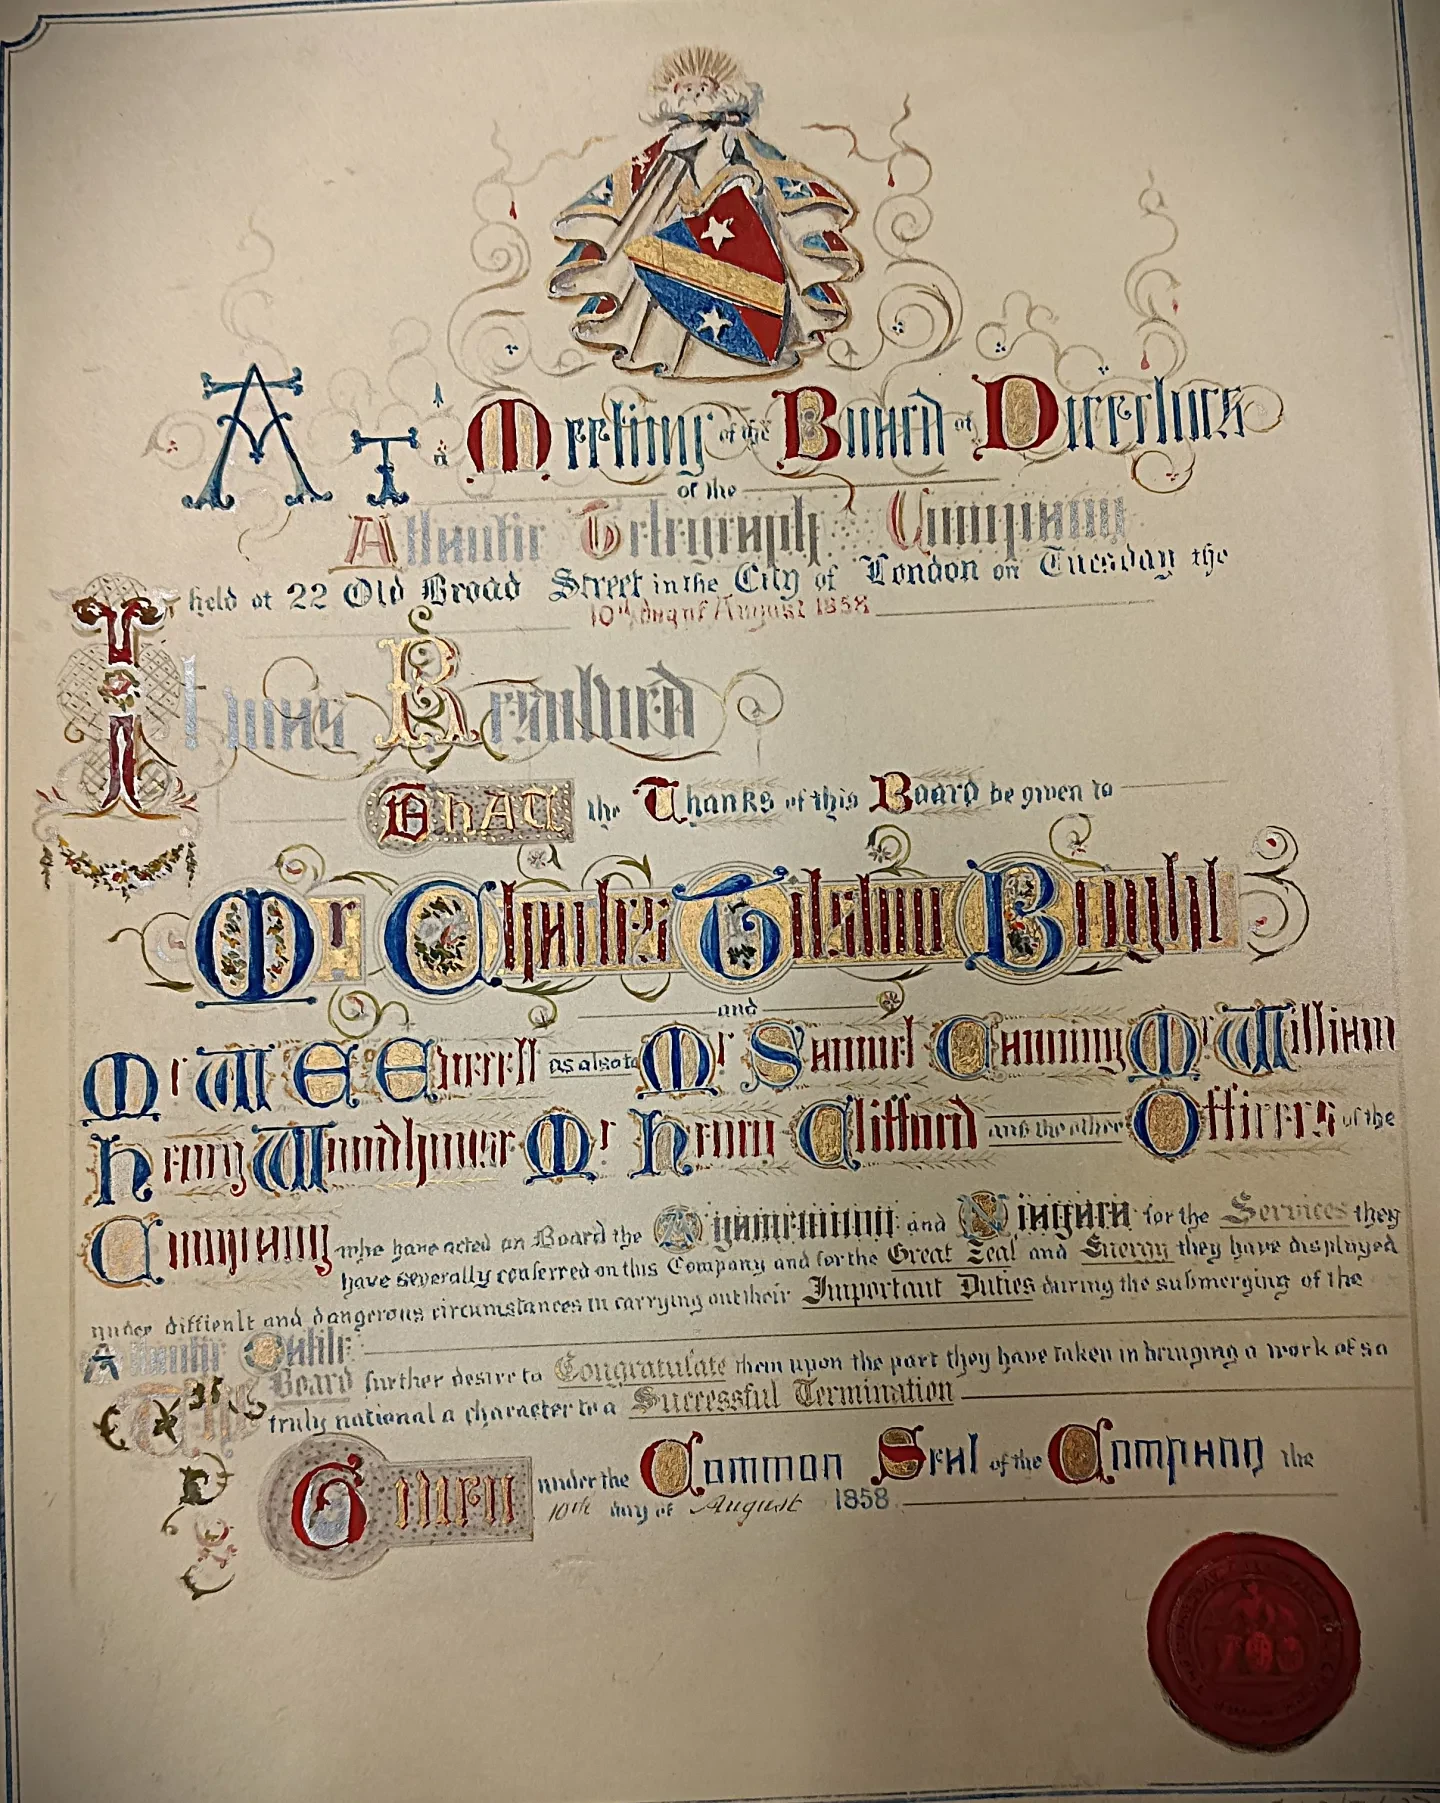 At a Meeting of the Board of Directors
of the
Atlantic Telegraph Company
held at 22 Old Broad Street in the City of London on Tuesday the
10th day of August 1858
It was Resolved
That the Thanks of this Board be given to
Mr Charles Tilston Bright
and
Mr W E Everett as also to Mr Samuel Canning Mr William
Henry Woodhouse Mr Henry Clifford and the other Officers of the
Company who have acted on Board the Agamemnon and Niagara for the Services they
have severally conferred on this Company and for the Great Zeal and Energy they have displayed
under difficult and dangerous circumstances in carrying out their Important Duties during the submerging of the
Atlantic Cable
The Board further desire to Congratulate them upon the part they have taken in bringing a work of so
truly national a character to a Successful Termination
Given under the Common Seal of the Company the
10th day of August 1858